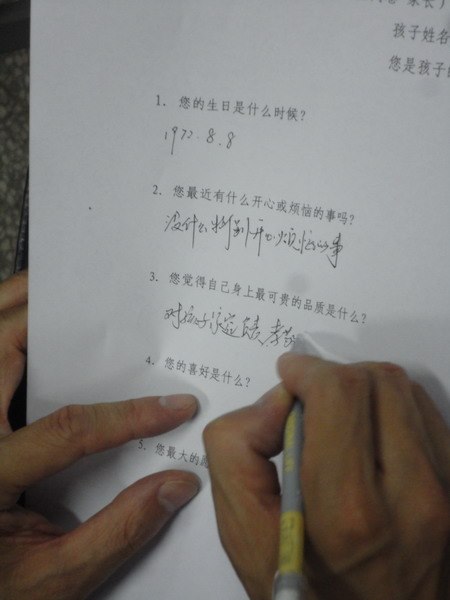 家长）
孩子姓名
您是孩子的
1. 您的生日是什么时候？
1972.8.8
2. 您最近有什么开心或烦恼的事吗？
没什么特别开心烦恼的事
3. 您觉得自己身上最可贵的品质是什么？
对孩子家庭负责.孝
4. 您的喜好是什么？
5. 您最大的愿